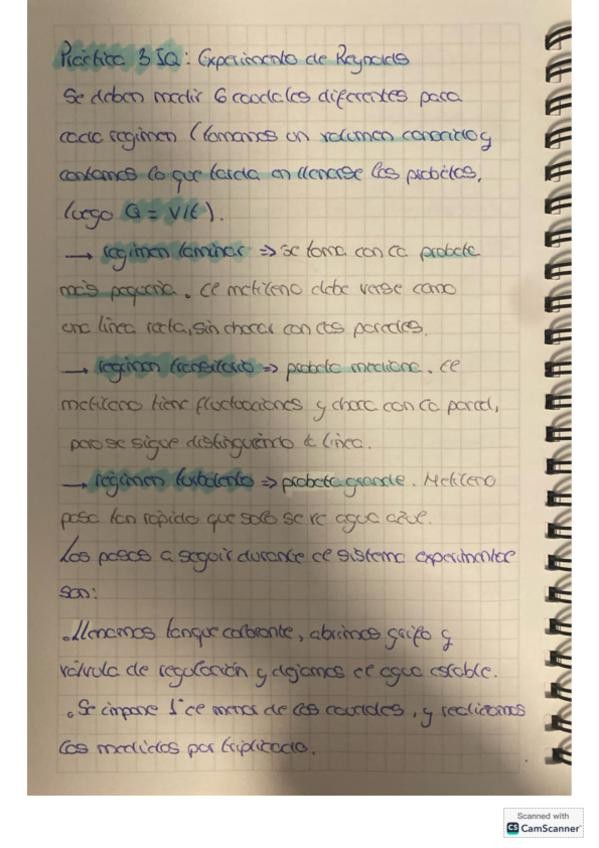 Práctica 3 IQ: Experimento de Reynolds
Se deben medir 6 caudales diferentes para
cada regimen (tomamos un volumen conocido y
contamos lo que tarda en llenarse las probetas,
luego Q = V/t).
→ regimen laminar => se toma con la probeta
más pequeña. el metileno debe verse como
una línea recta, sin chocar con las paredes.
→ regimen transitorio => probeta mediana. el
metileno tiene fluctuaciones y choca con la pared,
pero se sigue distinguiendo la línea.
→ regimen turbulento => probeta grande. Metileno
pasa tan rápido que solo se ve agua azul.
Los pasos a seguir durante el sistema experimental
son:
. Llenamos tanque, abrimos grifo y
válvula de regulación y dejamos el agua estable.
. Se impone 1º el menor de los caudales, y realizamos
las medidas por triplicado.
Scanned with
CS CamScanner